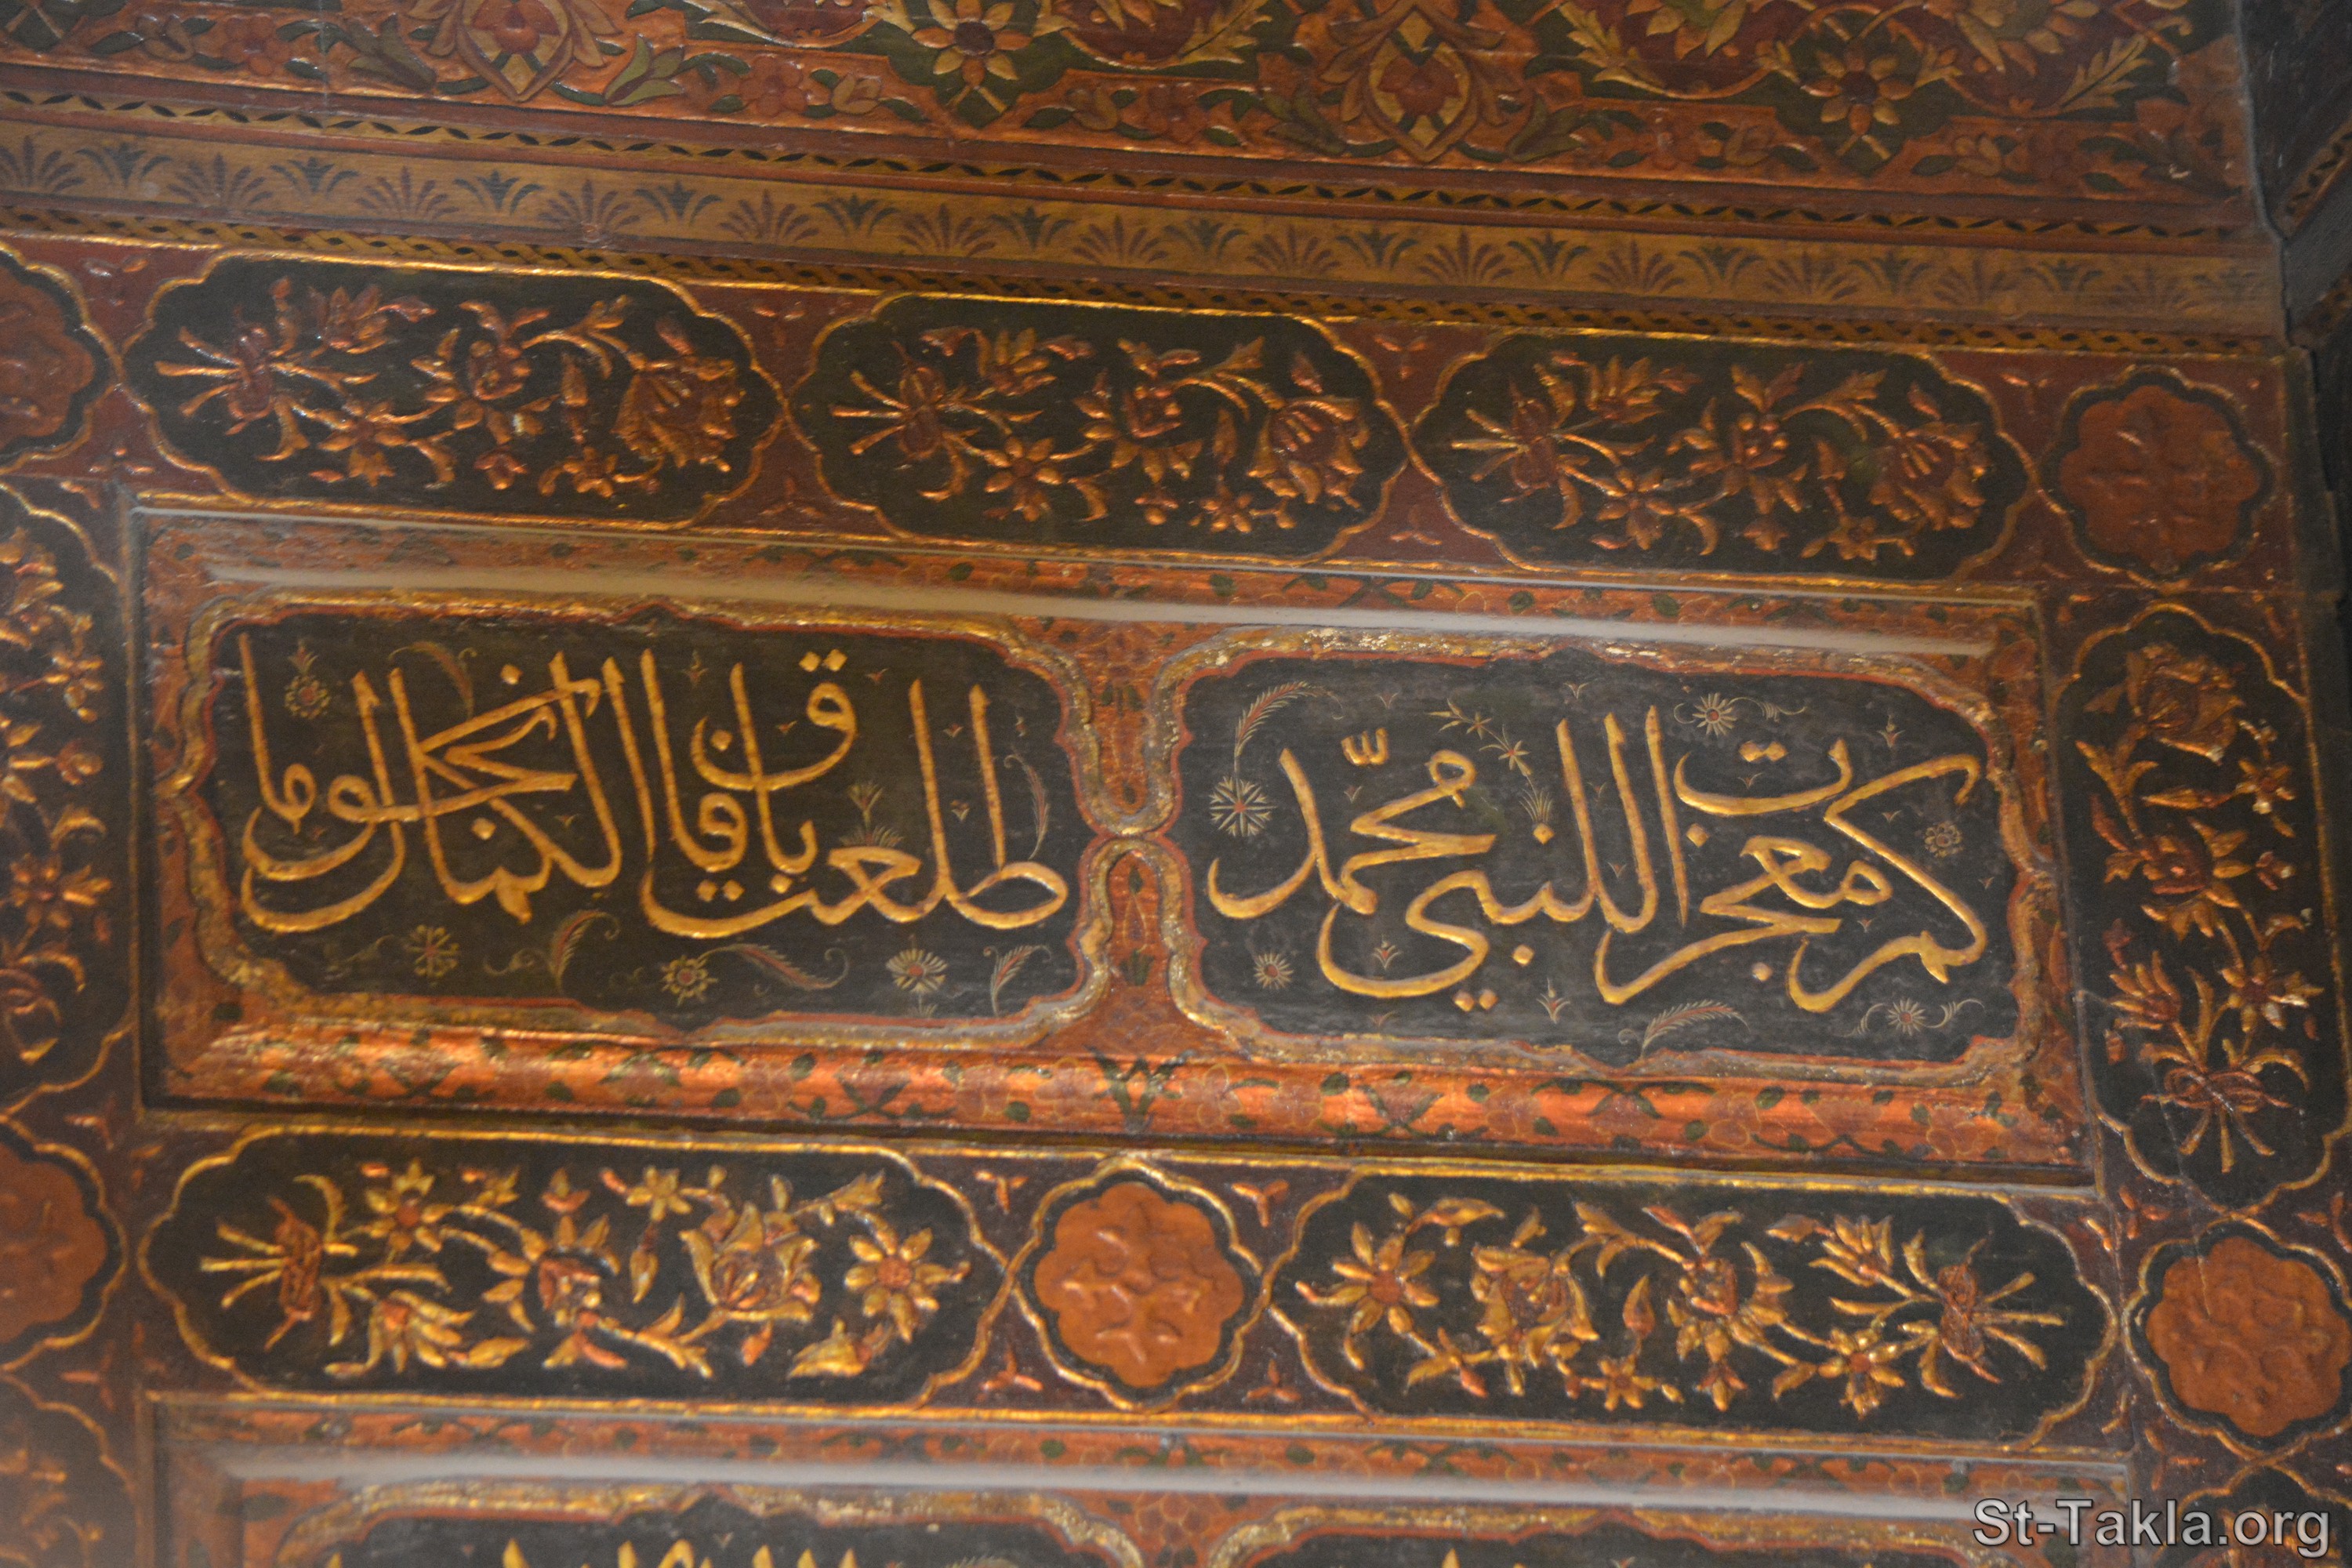 كم معجزات للنبي محمّد
طلعت بافاق الكمال نجوما
St-Takla.org